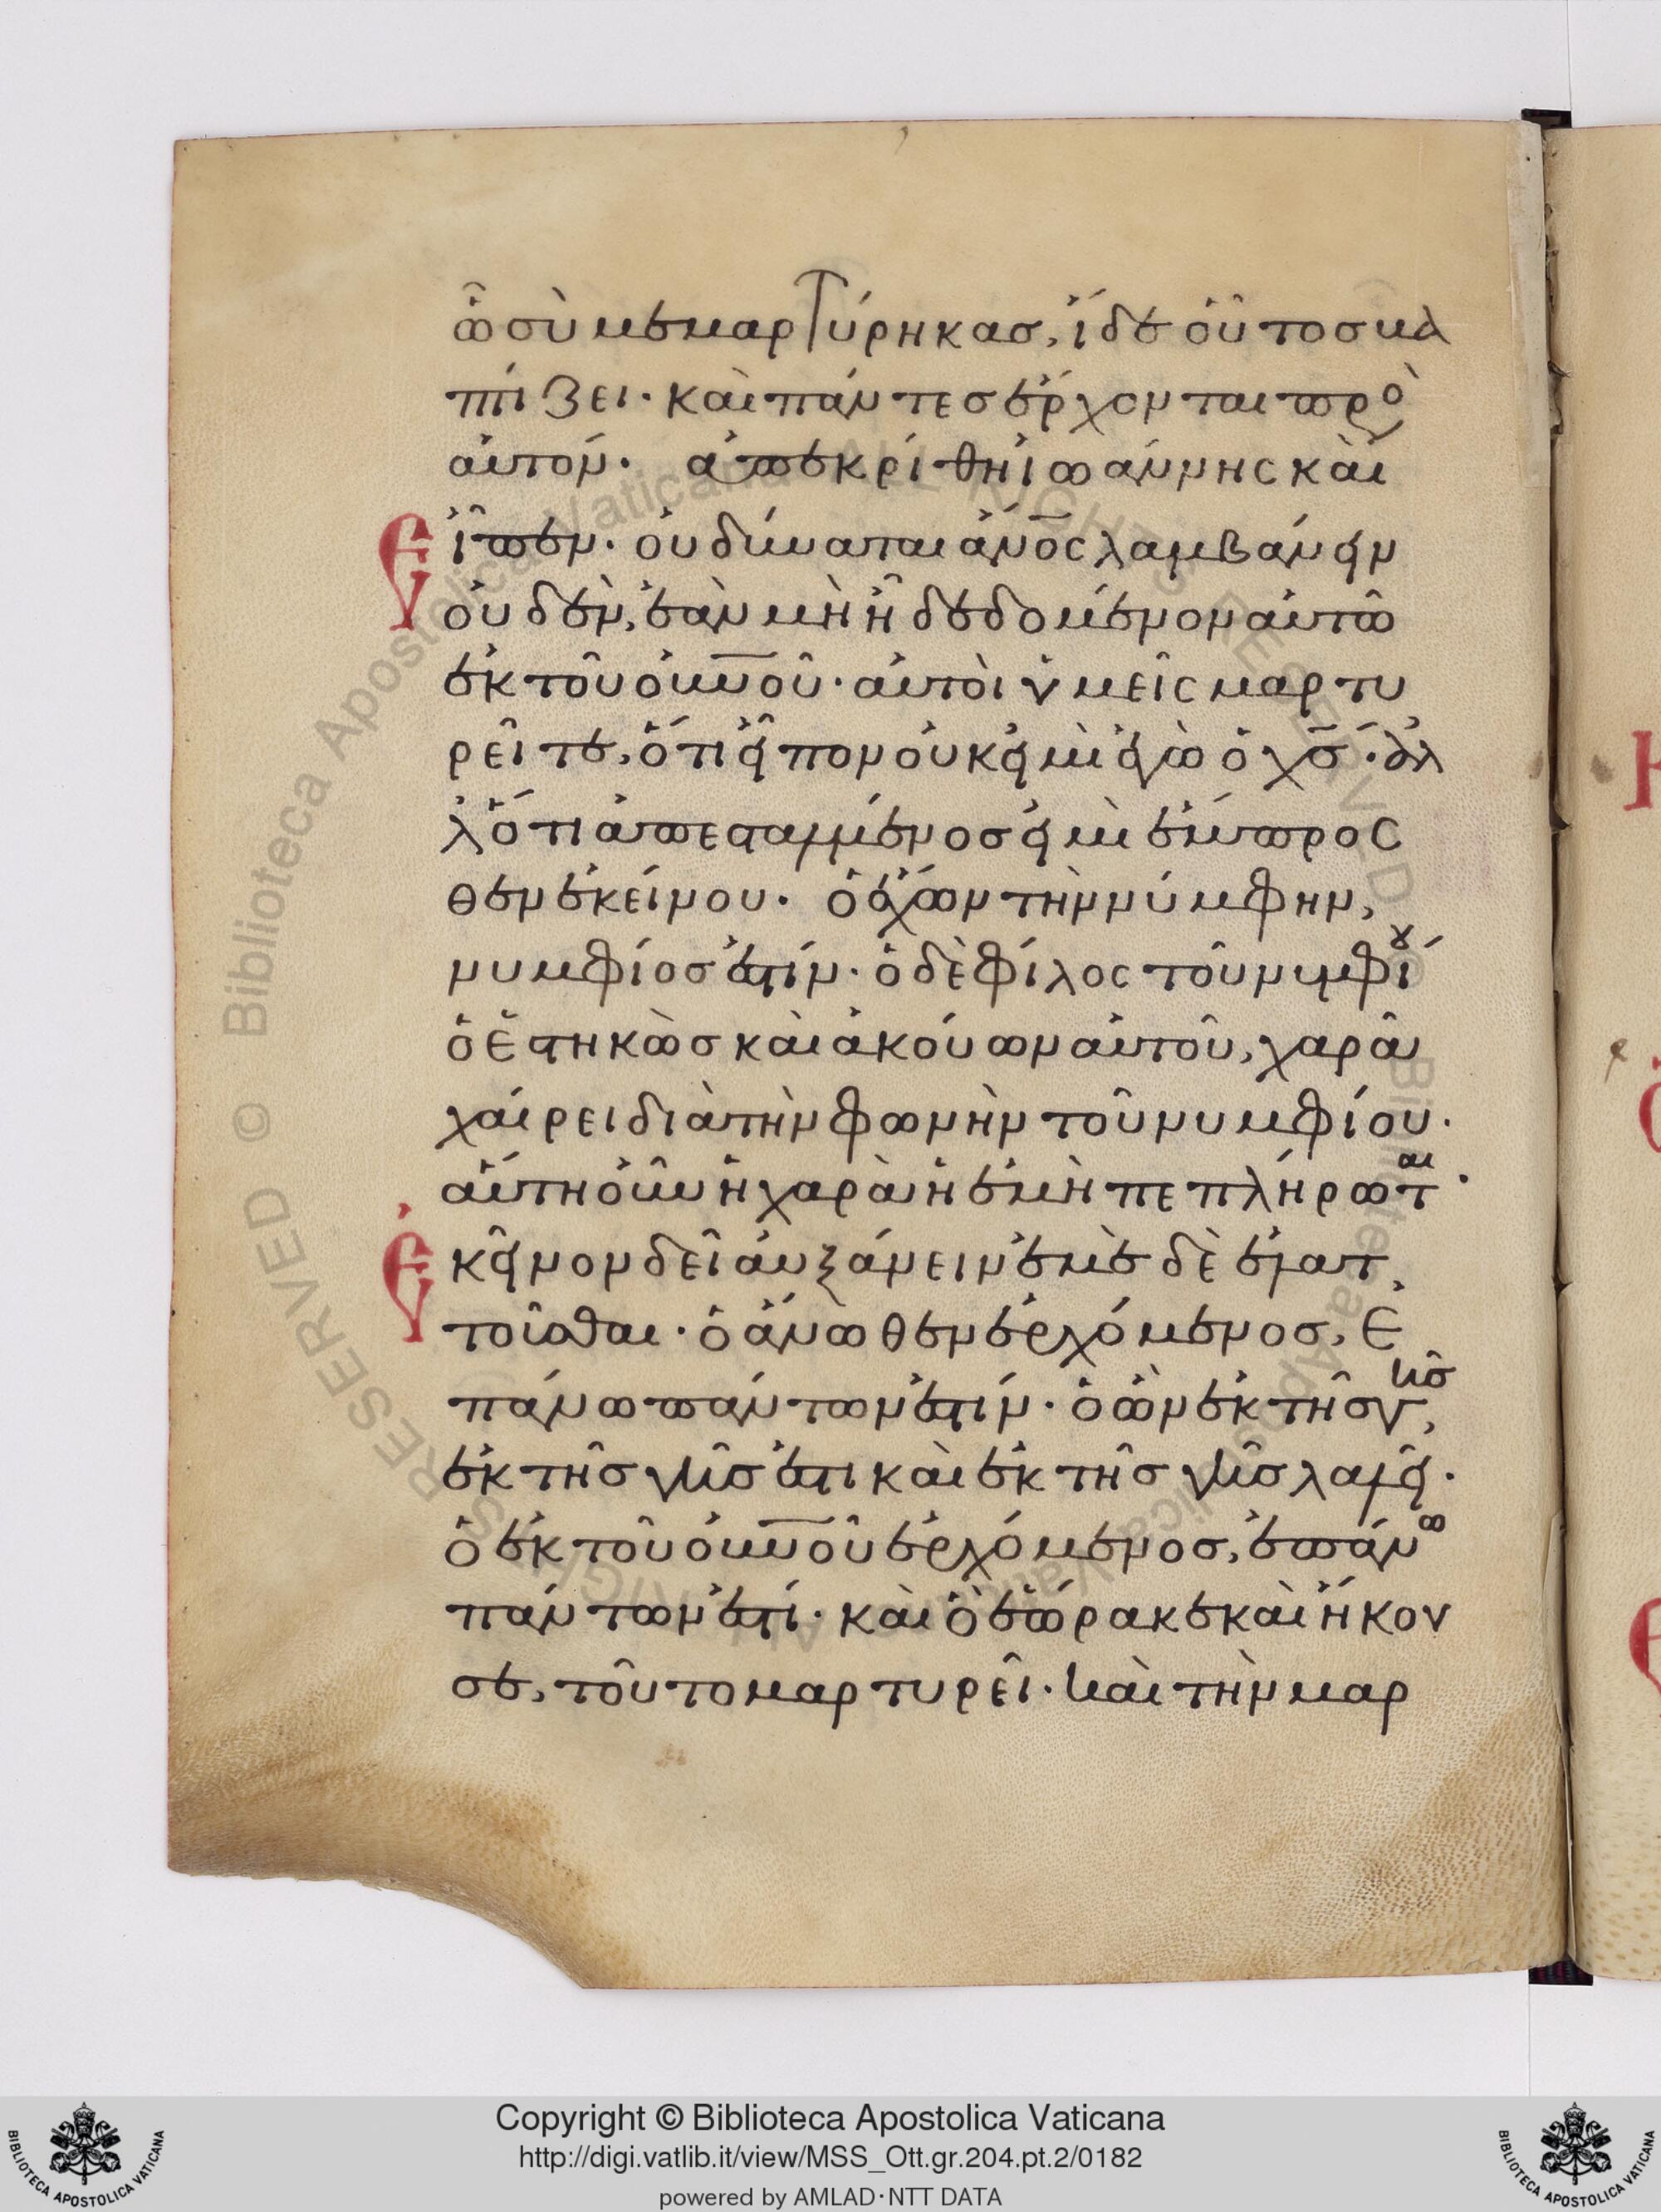 ὧ σὺ μεμαρτύρηκασ, ἴδε οὗτοσ βα
πτίζει· καὶ πάντεσ ἔρχονται πρὸ
αὐτόν· ἀπεκρίθη ἰωάννης καὶ
εἶπεν· οὐ δύναται ἄνος λαμβάνειν
οὐδὲν, ἐὰν μὴ ἦ δεδομένον αὐτῶ
ἐκ τοῦ οὐνοῦ· αὐτοὶ ὑμεῖς μαρτυ
ρεῖτε, ὅτι εἶπον οὐκ εἰμὶ ἐγὼ ὁ χσ· ἀλ
λ ὅτι ἀπεσταλμένοσ εἰμὶ ἔμπροσ
θεν ἐκείνου· ὁ ἔχων τὴν νύμφην,
νυμφίοσ ἐστίν· ὁ δὲ φίλος τοῦ νυμφίου
ὁ ἑστηκὼσ καὶ ἀκούων αὐτοῦ, χαρᾶ
χαίρει διὰ τὴν φωνὴν τοῦ νυμφίου·
αὕτη οὖν ἡ χαρὰ ἡ ἐμὴ πεπλήρωται·
ἐκεῖνον δεῖ αὐξάνειν ἐμὲ δὲ ἐλατ
τοῦσθαι· ὁ ἄνωθεν ἐρχόμενοσ, ἐ
πάνω πάντων ἐστίν· ὁ ὢν ἐκ τῆσ γῆσ,
ἐκ τῆσ γῆσ ἐστι καὶ ἐκ τῆσ γῆσ λαλεῖ·
ὁ ἐκ τοῦ οὐνοῦ ἐρχόμενοσ, ἐπάνω
πάντων ἐστί· καὶ ὃ ἑώρακε καὶ ἤκου
σε, τοῦτο μαρτυρεῖ· καὶ τὴν μαρ
Biblioteca Apostolica Vaticana
Copyright © Biblioteca Apostolica Vaticana
http://digi.vatlib.it/view/MSS_Ott.gr.204.pt.2/0182
powered by AMLAD·NTT DATA
BIBLIOTECA APOSTOLICA VATICANA
BIBLIOTECA APOSTOLICA VATICANA